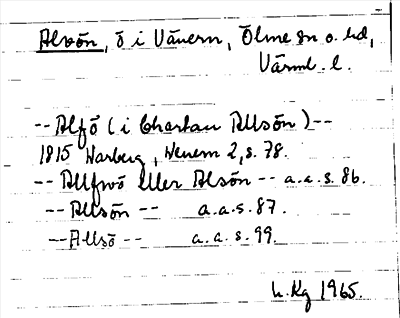 Alsön, ö i Vänern, Ölme sn o. hd,
Värml. l.
--Alfö (i Chartan Allsön)--
1815 Warberg, Wenern 2, s. 78.
--Allfwö eller Alsön-- a.a.s. 86.
--Allsön-- a.a.s. 87.
--Allsö-- a.a.s. 99.
h. Kg 1965.